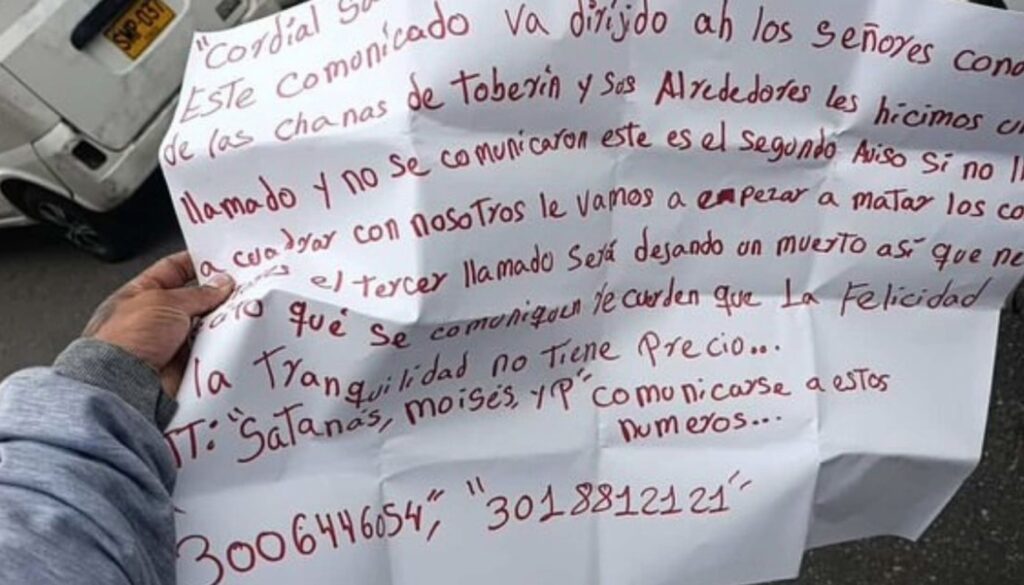 SMP-037
"Cordial
Este comunicado va dirijdo ah los señores
de las chanas de toberin y sus Alrededores les hicimos
llamado y no se comunicaron este es el segundo Aviso si no
a cuadrar con nosotros le vamos a empezar a matar los
el tercer llamado será dejando un muerto así que
qué se comuniquen recuerden que La Felicidad
la tranquilidad no tiene precio...
ATT: "Satanás, moisés, y P" comunicarse a estos
numeros...
3006446054," "3018812121"